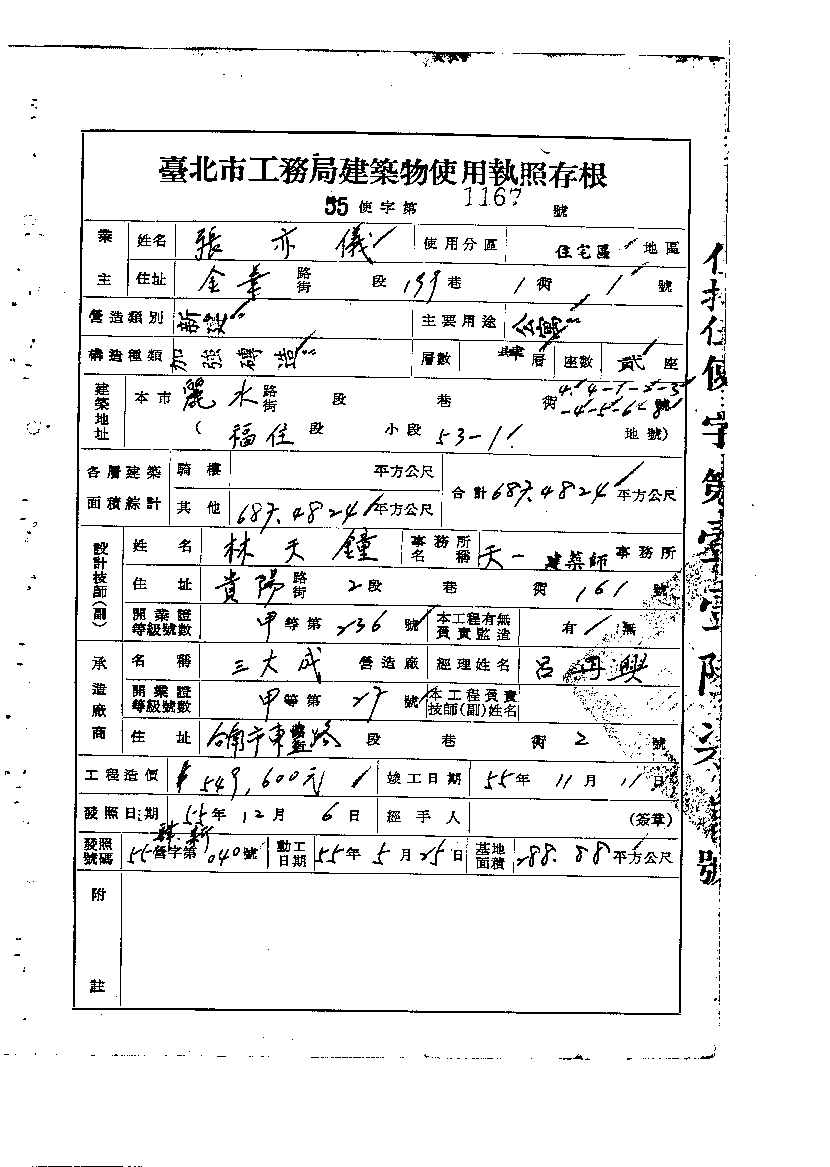 臺北市工務局建築物使用執照存根
55 使字第 1167 號
業主 姓名 張亦儀 使用分區 住宅區 地區
住址 金華 路街 段 199 巷 1 衖 1 號
營造類別 新建 主要用途 公寓
構造種類 加強磚造 層數 肆 層 座數 貳 座
建築地址 本市 麗水 路街 段 巷 衖 4.4-1-2-3-4-5-6-8 號
( 福住 段 小段 53-11 地號)
各層建築面積綜計 騎樓 平方公尺 合計 687.4824 平方公尺
其他 687.4824 平方公尺
設計技師(副) 姓名 林天鐘 事務所名稱 天一建築師 事務所
住址 貴陽 路街 2 段 巷 衖 161 號
開業證等級號數 甲 等第 236 號 本工程有無負責監造 有 無
承造廠商 名稱 三大成 營造廠 經理姓名 呂再興
開業證等級號數 甲 等第 27 號 本工程負責技師(副)姓名
住址 台南市東豐路 段 巷 衖 2 號
工程造價 $549,600元 竣工日期 55 年 11 月 11 日
發照日期 55 年 12 月 6 日 經手人 (簽章)
發照號碼 55 營字第 040 號 動工日期 55 年 5 月 25 日 基地面積 288.88 平方公尺
附註
使字第 號